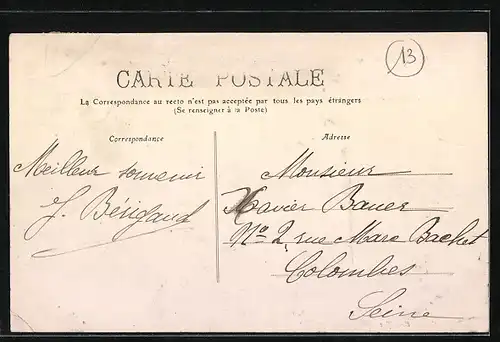 13
CARTE POSTALE
La Correspondance au recto n'est pas acceptée par tous les pays étrangers
(Se renseigner à la Poste)
Correspondance
Meilleur souvenir
J. Bérigaud
Adresse
Monsieur
Xavier Bauer
No 2, rue Marc Bachet
Colombes
Seine